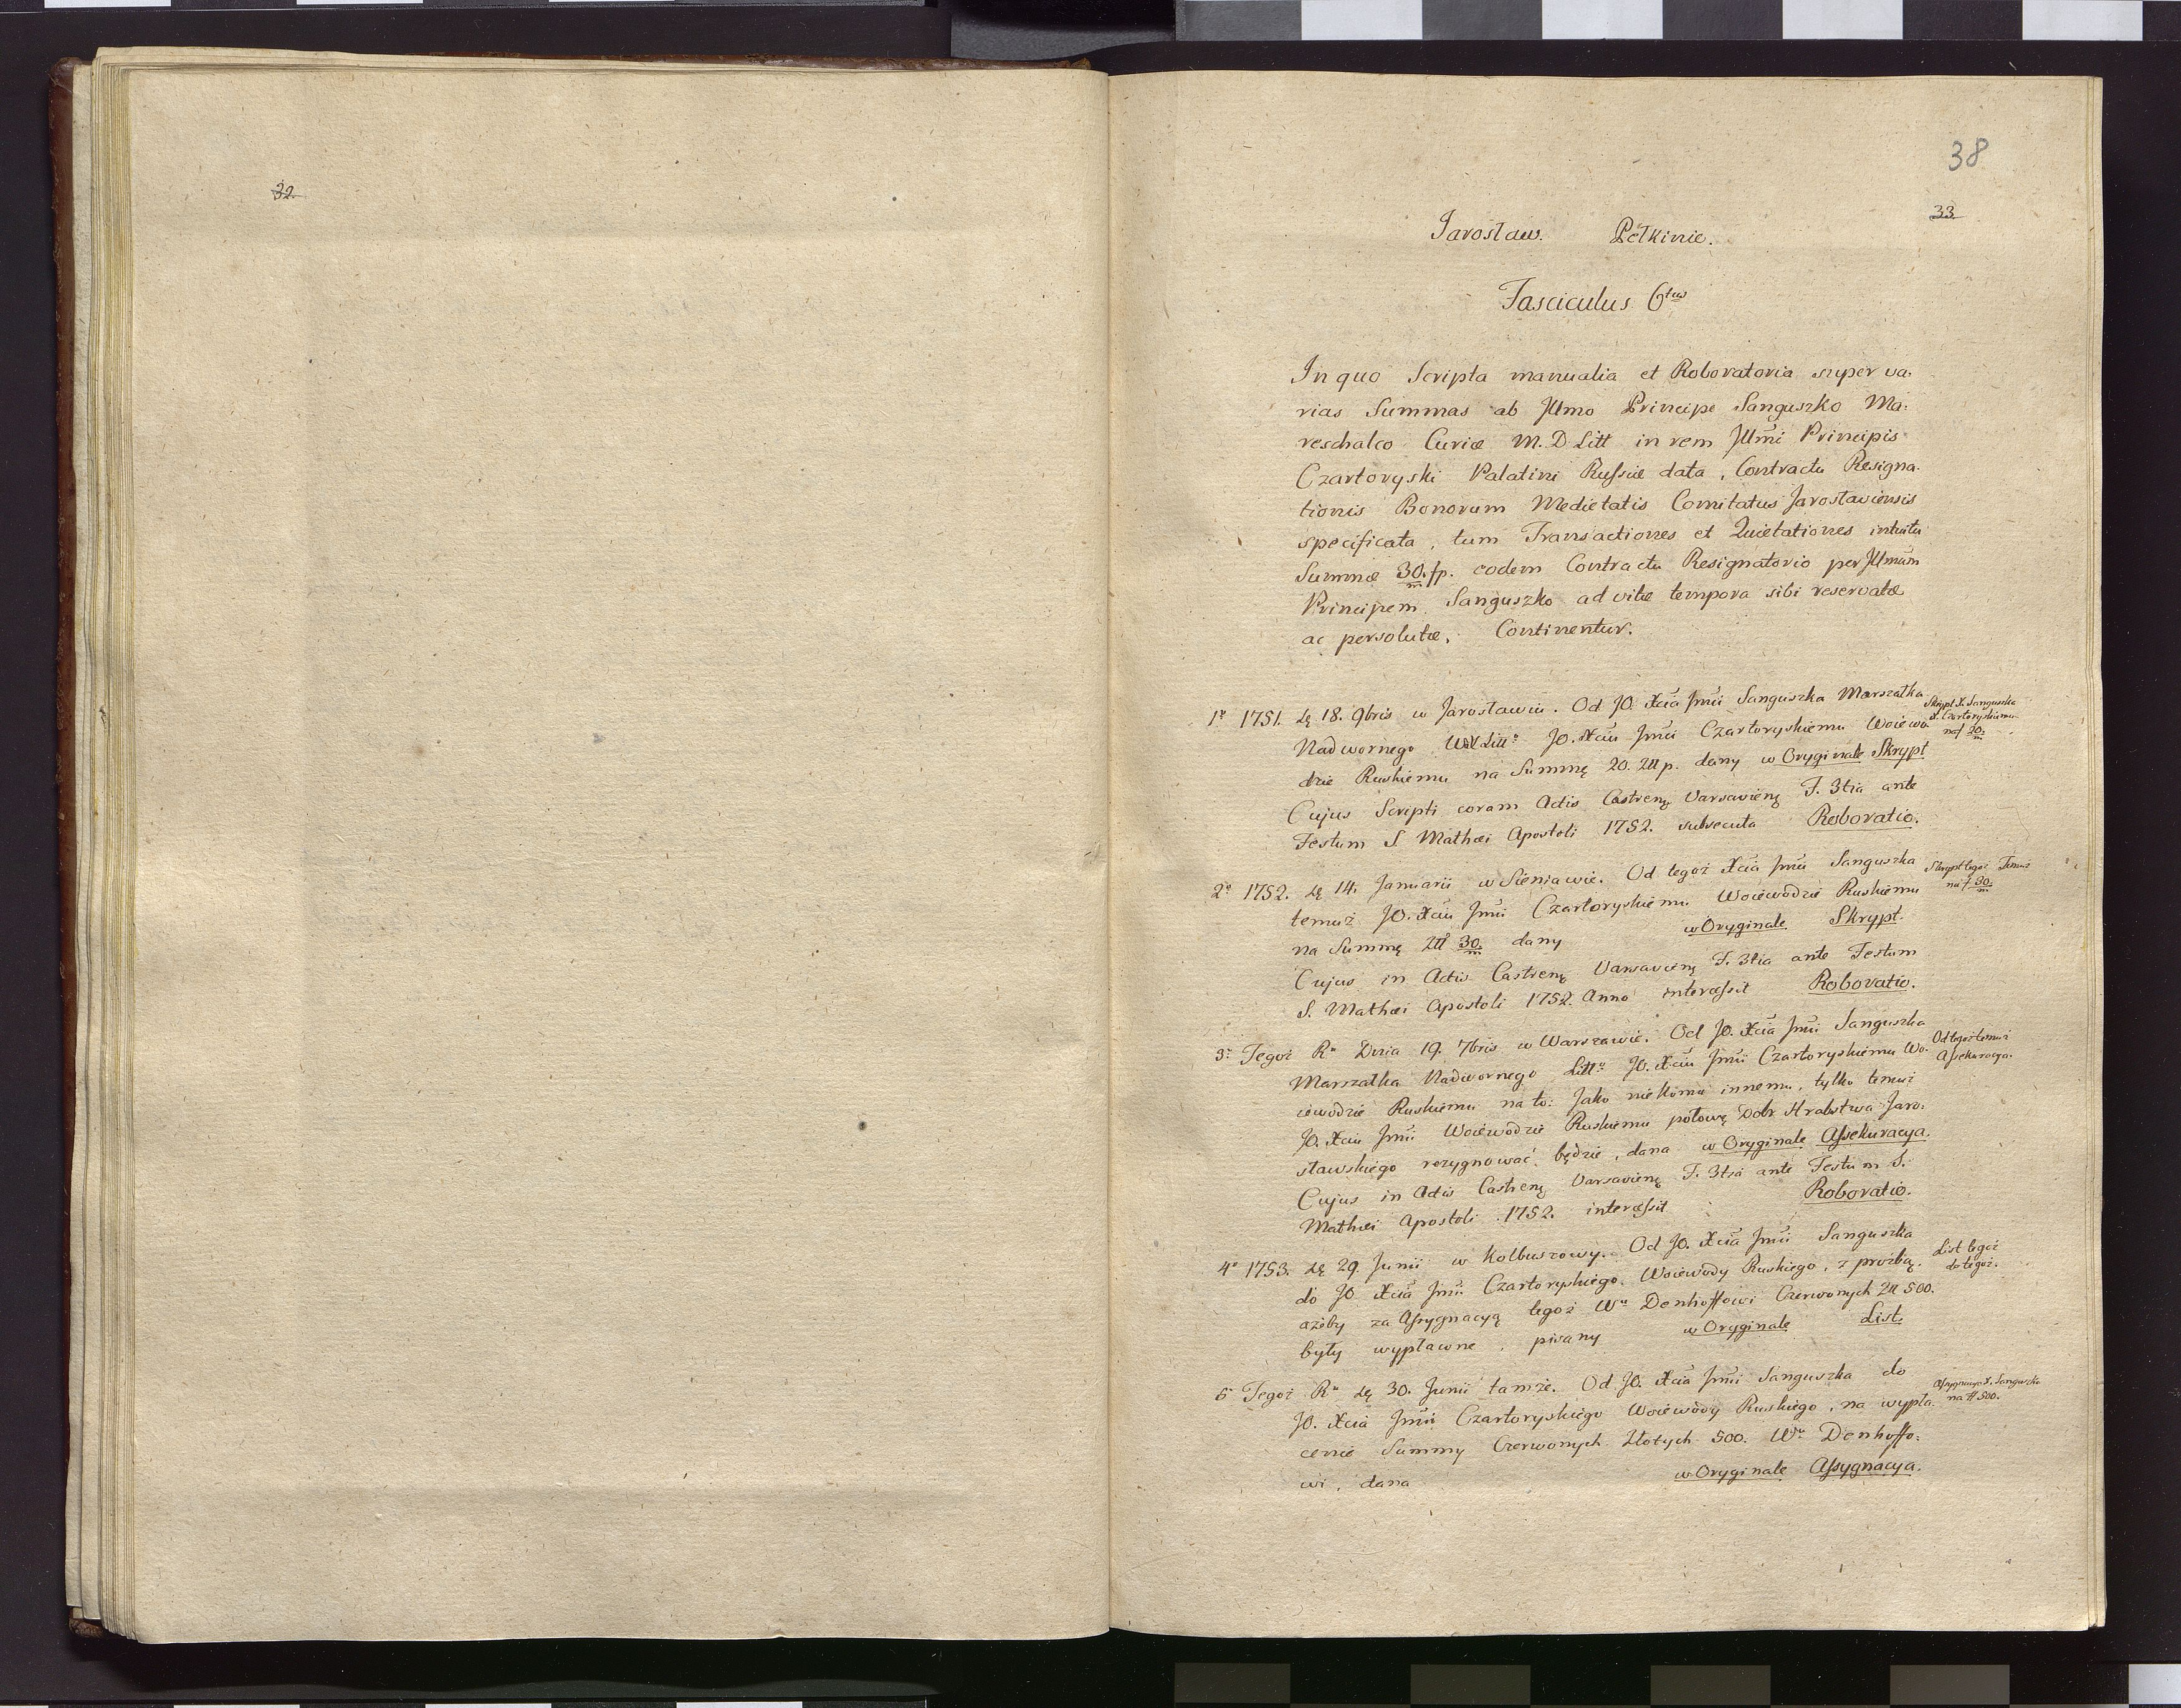 32.
38
33
Jarosław. Pełkinie.
Fasciculus 6tus
In quo Scripta manualia et Roboratoria super va-
rias Summas ab Illmo Principe Sanguszko Ma-
reschalco Curiæ M. D Litt in rem Illmi Principis
Czartoryski Palatini Russiæ data, Contractu Resigna-
tionis Bonorum Medietatis Comitatus Jarosławiensis
specificata, tum Transactiones et Quietationes intuitu
Summæ 30/m. fp. eodem Contractu Resignatorio per Illmum
Principem Sanguszko ad vitæ tempora sibi reservatæ
ac persolutæ. Continentur.
1º 1751. dę 18. 9bris w Jarosławiu. Od JO. Xcia Jmći Sanguszka Marszałka
Nadwornego Litto JO. Xciu Jmći Czartoryskiemu Woiewo-
dzie Ruskiemu na Summę 20. Złł p. dany w Oryginale Skrypt
Cujus Scripti coram Actis Castrenę Varsavienę F. 3tia ante
Festum S Mathæi Apostoli 1752. subsecuta Roboratio.
Skrypt X. Sanguszka
X. Czartoryskiemu
na f 20/m
2º 1752. dę 14. Januarii w Sieniawie. Od tegoż Xcia Jmći Sanguszka
temuż JO. Xciu Jmći Czartoryskiemu Woiewodzie Ruskiemu
na Summę Złł 30/m dany w Oryginale Skrypt.
Cujus in Actis Castrenę Varsavienę F. 3tia ante Festum
S. Mathæi Apostoli 1752. Anno intercessit Roboratio.
Skrypt tegoż Temuż
na f 30/m
3º Tegoż Ru Dnia 19. 7bris w Warszawie. Od JO. Xcia Jmći Sanguszka
Marszałka Nadwornego Litto JO. Xciu Jmći Czartoryskiemu Wo-
iewodzie Ruskiemu na to: Jako nie komu innemu, tylko temuż
JO. Xciu Jmći Woiewodzie Ruskiemu połowę Dobr Hrabstwa Jaro-
sławskiego rezygnować będzie, dana w Oryginale Assekuracya.
Cujus in Actis Castrenę Varsavienę F. 3tia ante Festum S.
Mathæi Apostoli 1752. intercessit Roboratio.
Od tegoż temuż
Assekuracya.
4º 1753. dę 29. Junii w Kolbuszowy. Od JO. Xcia Jmći Sanguszka
do JO Xcia Jmći Czartoryskiego Woiewody Ruskiego, z prozbą,
ażeby za Assygnacyą tegoż Wu Denhoffowi Czerwonych Złł 500.
były wypłacone, pisany w Oryginale List.
List tegoż
do tegoż.
5º Tegoż Ru dę 30. Junii tamże. Od JO. Xcia Jmći Sanguszka do
JO. Xcia Jmći Czartoryskiego Woiewody Ruskiego, na wypła-
cenie Summy Czerwonych Złotych 500. Wu Denhoffo-
wi, dana w Oryginale Assygnacya.
Assygnacya X. Sanguszka
na # 500.